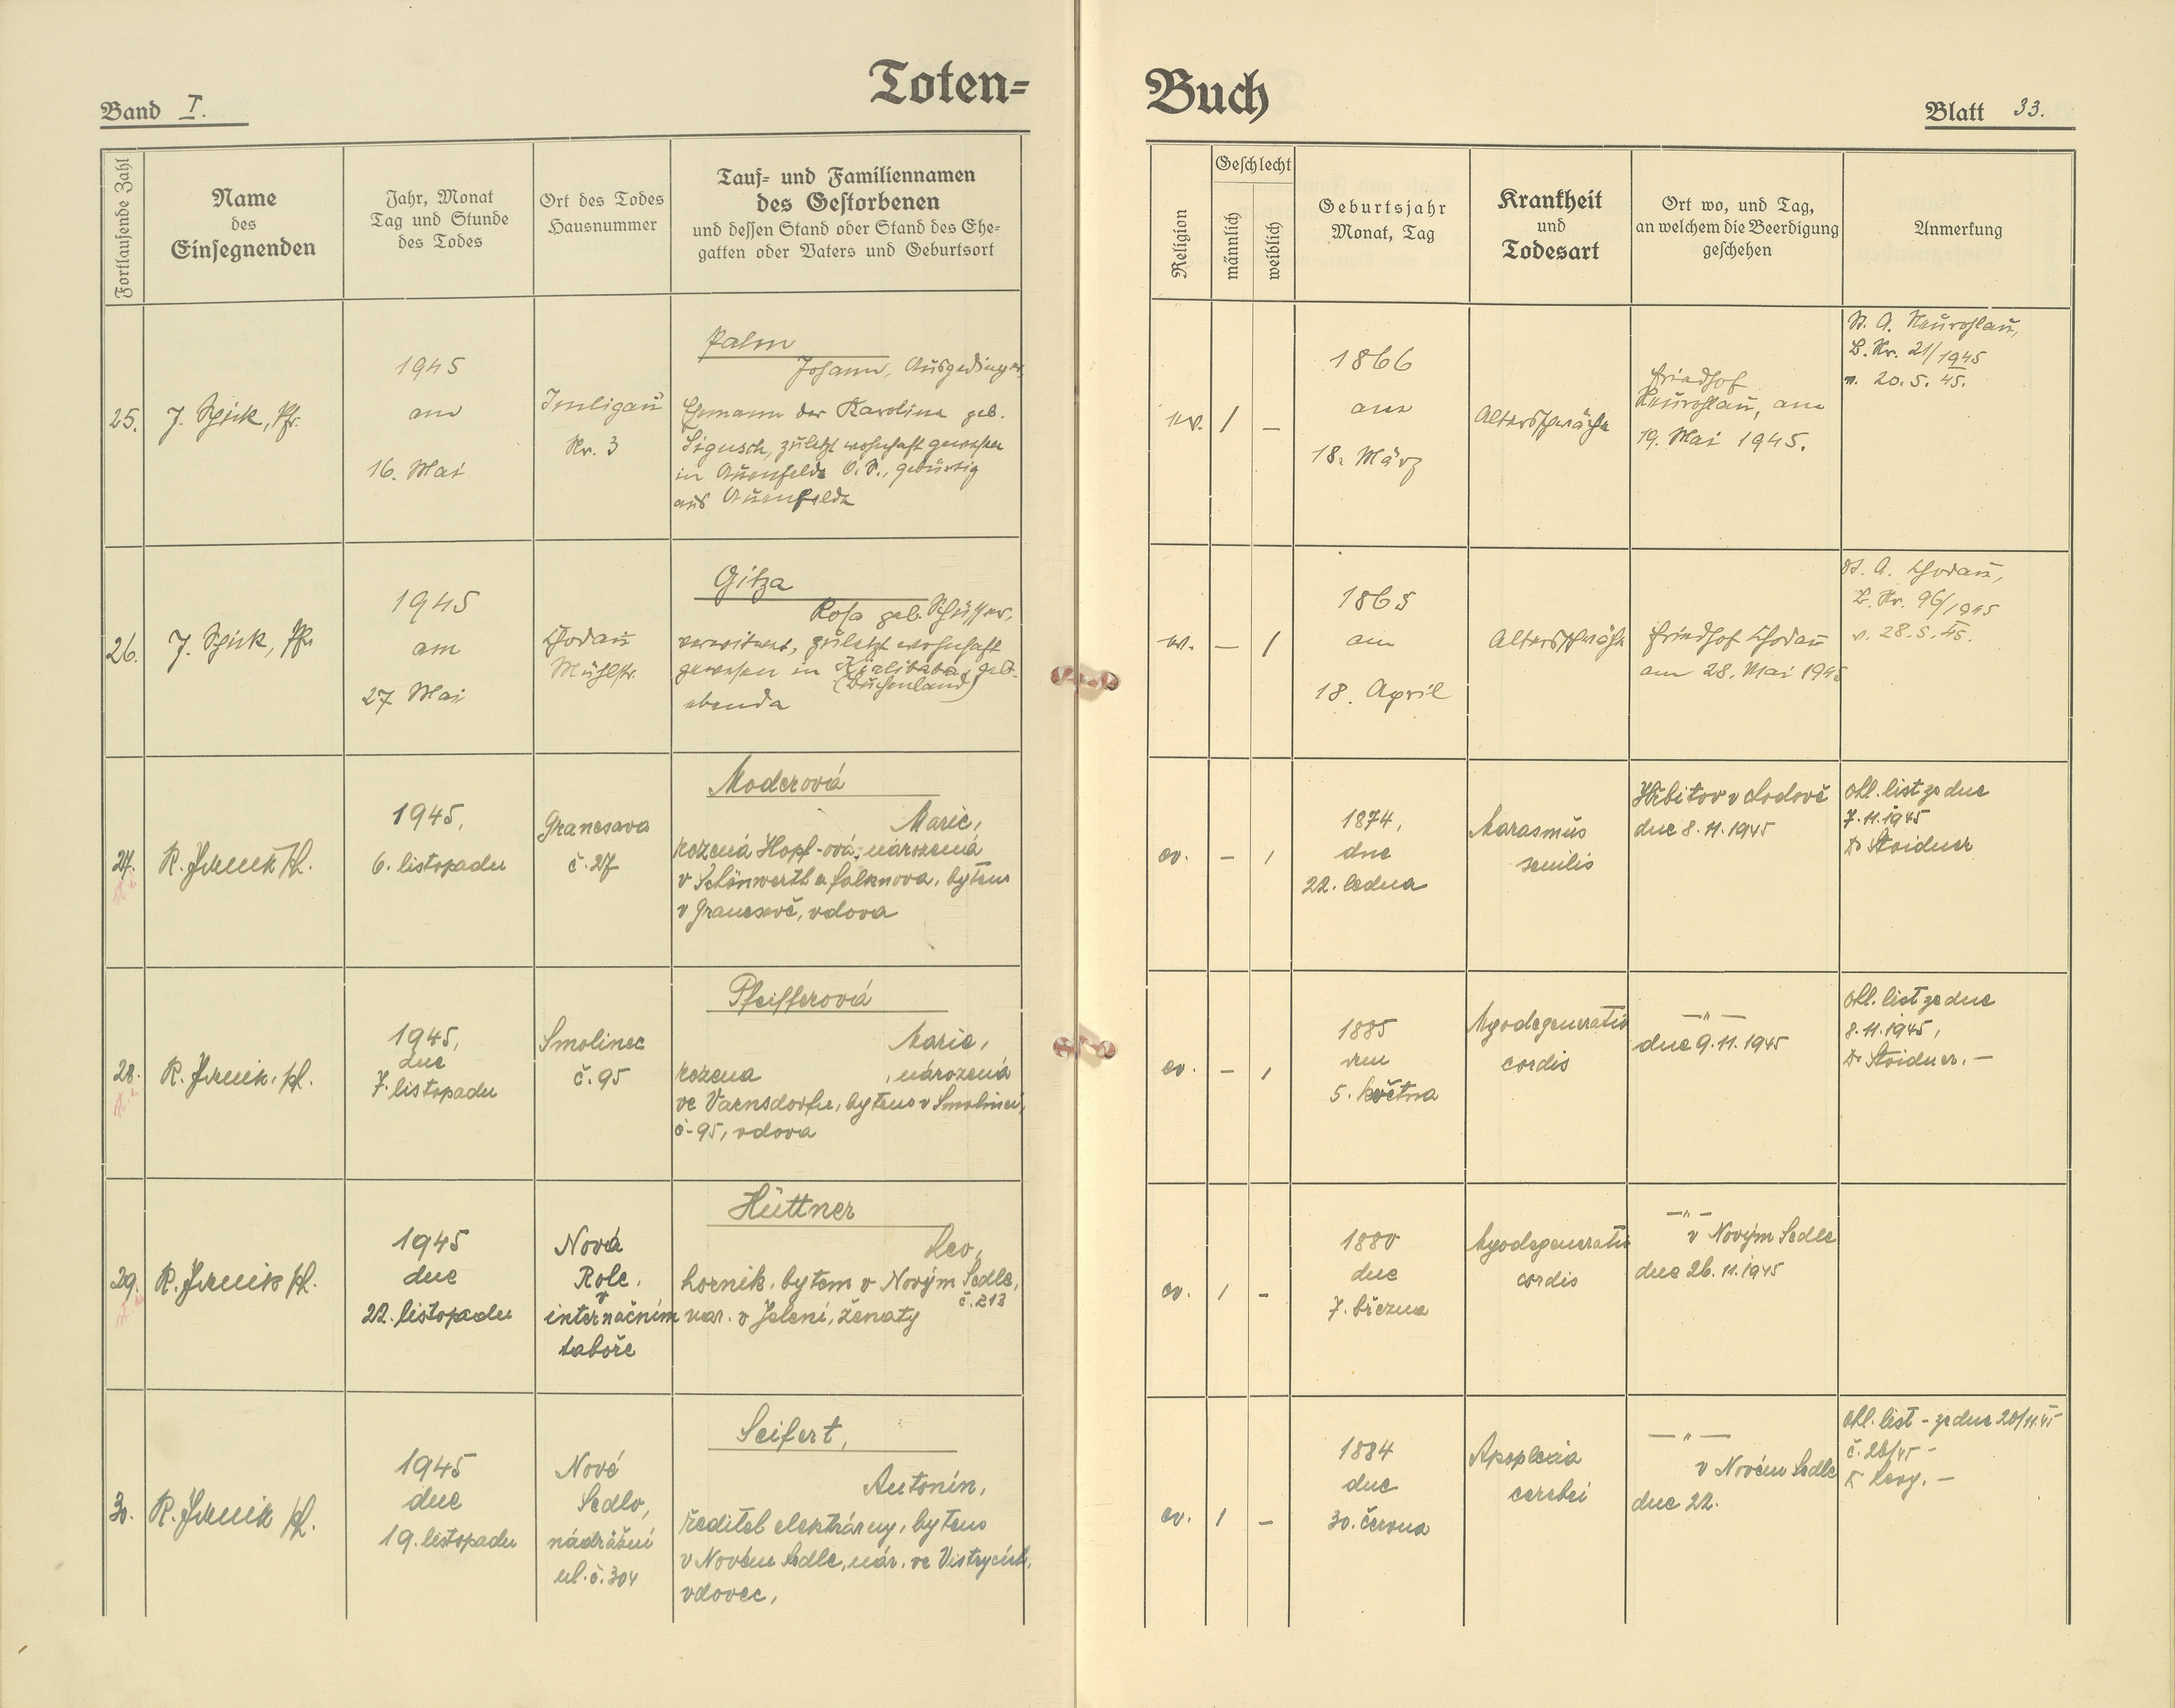 Toten=
Buch
Band I.
Blatt 33.
Fortlaufende Zahl
Name
des
Einsegnenden
Jahr, Monat
Tag und Stunde
des Todes
Ort des Todes
Hausnummer
Tauf= und Familiennamen
des Gestorbenen
und dessen Stand oder Stand des Ehe=
gatten oder Vaters und Geburtsort
Religion
Geschlecht
männlich
weiblich
Geburtsjahr
Monat, Tag
Krankheit
und
Todesart
Ort wo, und Tag,
an welchem die Beerdigung
geschehen
Anmerkung
25.
J. Pfr.
1945
am
16. Mai
Nr. 3
Palm
Johann, Ausgedinger,
Ehemann der Karoline geb.
Ligusch, zuletzt wohnhaft gewesen
in Auenfelde O.S., gebürtig
aus Auenfelde
ev.
/
—
1866
am
18. März
Altersschwäche
Friedhof
Neurohlau, am
19. Mai 1945.
St. A. Neurohlau,
B. Nr. 21/1945
v. 20. 5. 45.
26.
J. Pfr.
1945
am
27 Mai
Chodau
Mühlstr.
Gitza
Rosa geb.
verwitwet, zuletzt wohnhaft
gewesen in Kirlibaba, geb.
(Buchenland)
ebenda
ev.
—
/
1865
am
18. April
Altersschwäche
Friedhof Chodau
am 28. Mai 1945
St. A. Chodau,
B. Nr. 96/1945
v. 28. 5. 45.
27.
R.
1945,
6. listopadu
Granesava
č. 27
Moderová
Marie,
rozená Hopf-ová, narozená
v Schönwerth a Falknova, bytem
v Granesavě, vdova
ev.
-
/
1874,
dne
22. ledna
Marasmus
senilis
Hřbitov v Chodově
dne 8. 11. 1945
ohl. list ze dne
7. 11. 1945
Dr Stoidner
28.
R.
1945,
dne
7. listopadu
Smolnec
č. 95
Pfeifferová
Marie,
rozena , narozená
ve Varnsdorfu, bytem v Smolnici,
č. 95, vdova
ev.
-
/
1885
den
5. května
Myodegeneratio
cordis
—"—
dne 9. 11. 1945
ohl. list ze dne
8. 11. 1945,
Dr Stoidner. —
29.
R.
1945
dne
22. listopadu
Nová
Role,
v
internačním
táboře
Hüttner
Leo,
horník, bytem v Novým Sedle,
č. 213
nar. v Jelení, ženatý
ev.
/
-
1880
dne
7. března
Myodegeneratio
cordis
—"—
v Novým Sedle
dne 26. 11. 1945
30.
R.
1945
dne
19. listopadu
Nové
Sedlo,
nádražní
ul. č. 304
Seifert,
Antonín,
ředitel elektrárny, bytem
v Novém Sedle, nár. ve
vdovec,
ev.
/
-
1884
dne
30. června
Apoplexia
cerebri
—"—
v Novém Sedle
dne 22.
ohl. list - ze dne 20/11 45
č. 28/45 -